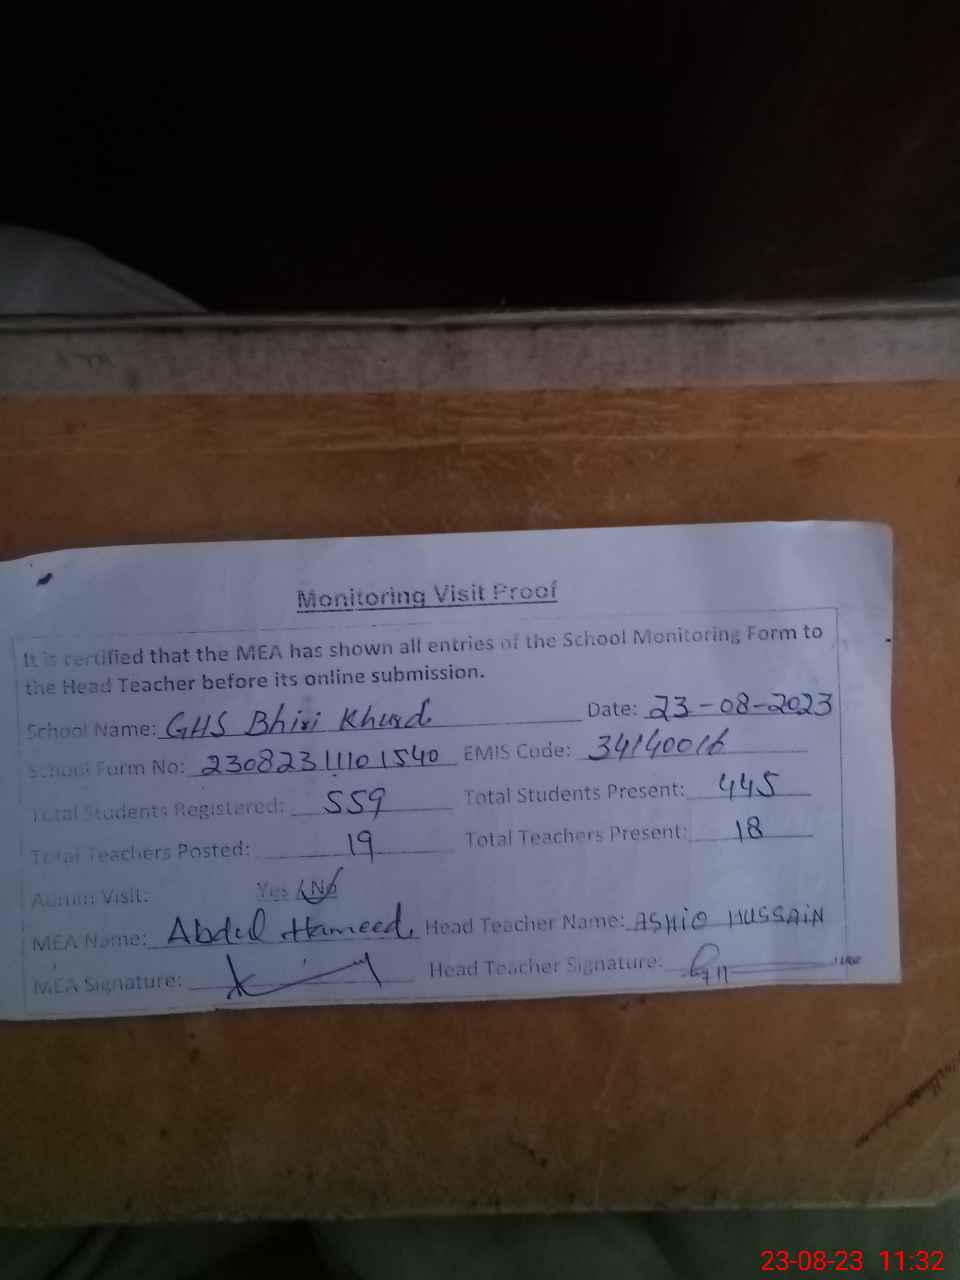 Monitoring Visit Proof
It is certified that the MEA has shown all entries of the School Monitoring Form to
the Head Teacher before its online submission.
School Name: GHS Bhiri Khurd. Date: 23-08-2023
School Form No: 23082311101540 EMIS Code: 34140016
Total Students Registered: 559 Total Students Present: 445
Total Teachers Posted: 19 Total Teachers Present: 18
Admin Visit: Yes / No
MEA Name: Abdul Hameed. Head Teacher Name: ASHIQ HUSSAIN
MEA Signature: Head Teacher Signature:
23-08-23 11:32